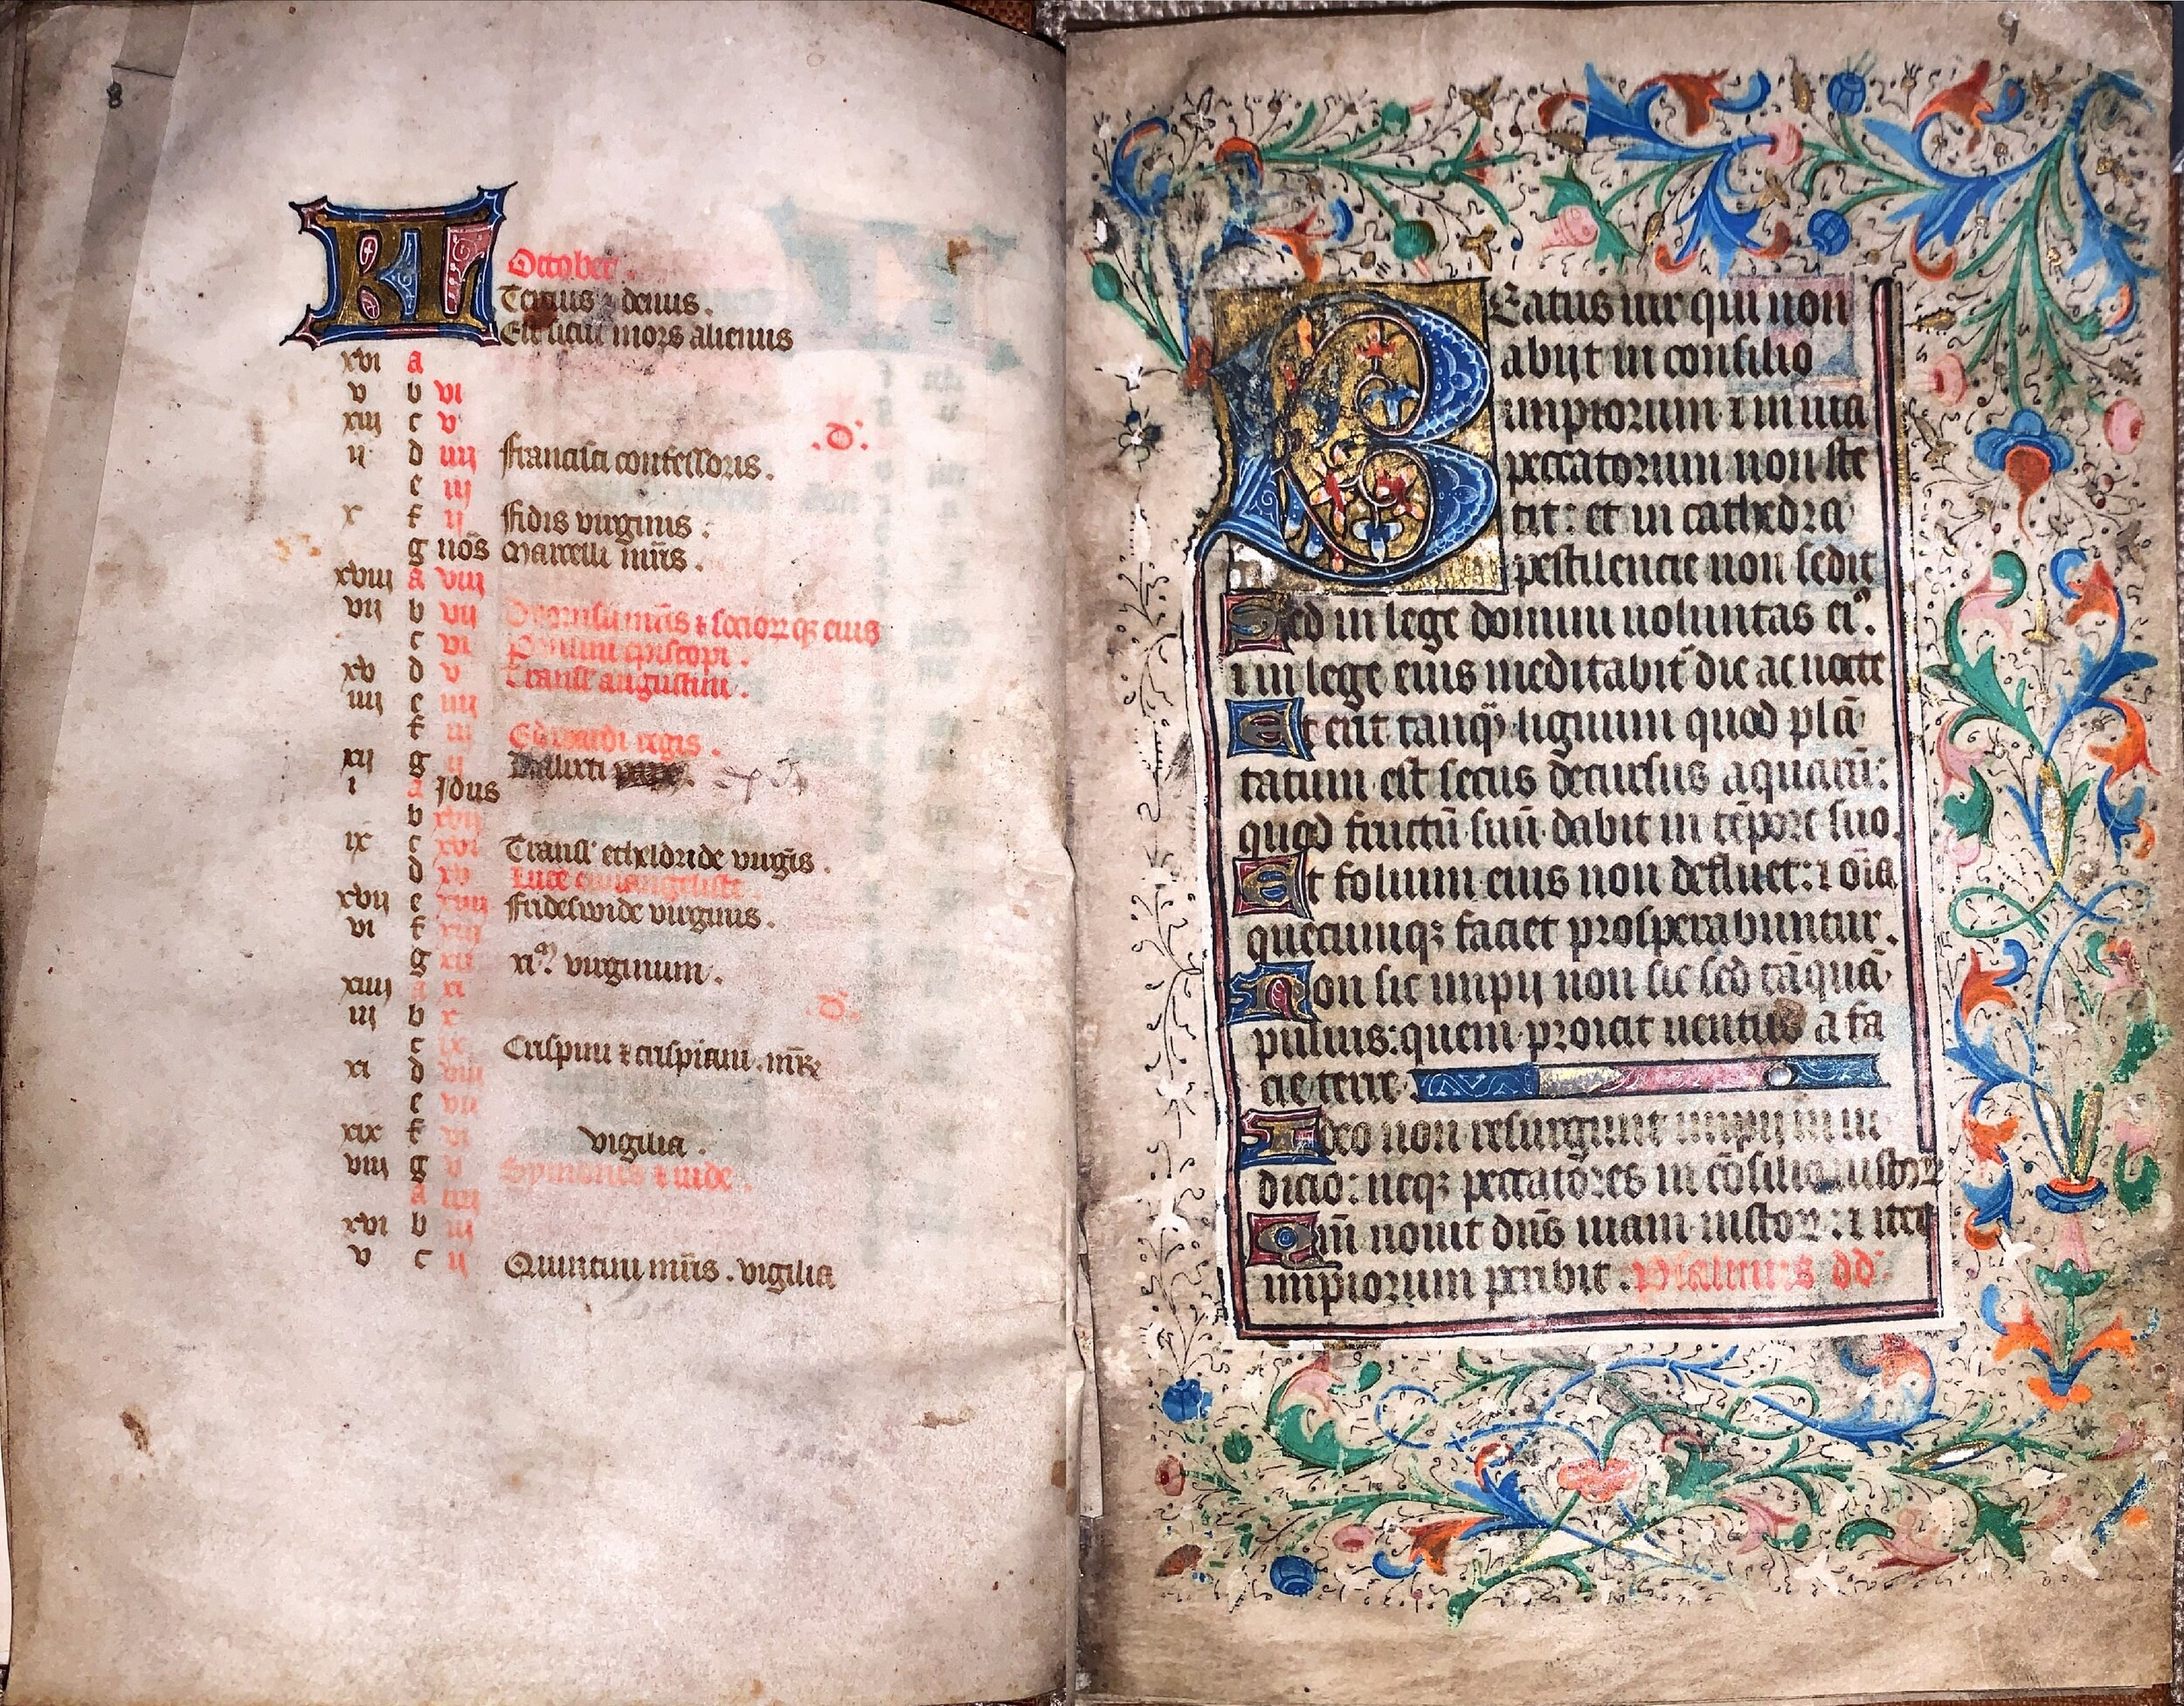 8
KL
October.
Tertius & denus.
Est sicut mors alienus
xvi a
v b vi
xiii c v
.D.
ii d iiii Francisci confessoris.
e iii
x f ii Fidis virginis.
g nōs Marcelli mr̄is.
xviii a viii
vii b vii Dyonisii mr̄is & socior̄ qꝫ eius
c vi Paulini episcopi.
xv d v Transl' augustini.
iiii e iiii
f iii Edwardi regis.
xii g ii Kalixti
i a Idus
b xvii
ix c xvi Transl' etheldride virgīs.
d xv Luce ewangeliste
xvii e xiiii Frideswide virginis.
vi f xiii
g xii xi virginum.
xiiii a xi
iii b x
.D.
c ix Crispini & crispiani.mr̄ꝝ
xi d viii
e vii
xix f vi vigilia.
viii g v Symonis & iude.
a iiii
xvi b iii
v c ii Quintini mr̄is. vigilia
9
Beatus uir qui non
abijt in consilio
impiorum ⁊ in uia
peccatorum non ste
tit: et in cathedra
pestilencie non sedit
Sed in lege domini uoluntas eiꝰ.
⁊ in lege eius meditabit᷑ die ac nocte
Et erit tanqͣ lignum quod plā
tatum est secus decursus aquarū:
quod fructū suū dabit in tēpore suo.
Et folium eius non defluet: ⁊ oīa
quecumqꝫ faciet prosperabuntur.
Non sic impij non sic sed tāquā
puluis: quem proicit uentus a fa
cie terre.
Ideo non resurgunt impij in iu
dicio: neqꝫ peccatores in cōsilio iustoꝝ
Qm̄ nouit dn̄s uiam iustoꝝ: ⁊ iter
impiorum peribit. Psalmus dd: